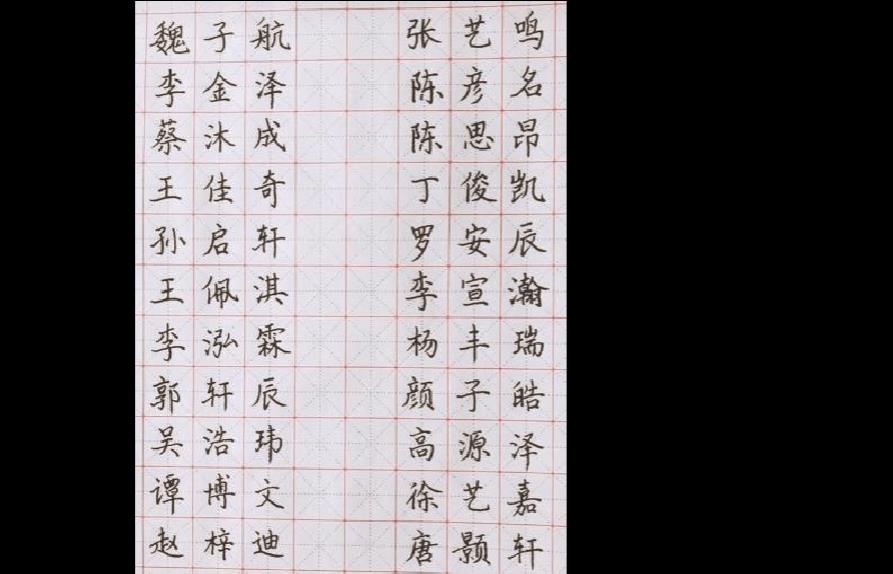 魏子航 张艺鸣
李金泽 陈彦名
蔡沐成 陈思昂
王佳奇 丁俊凯
孙启轩 罗安辰
王佩淇 李宣瀚
李泓霖 杨丰瑞
郭轩辰 颜子皓
吴浩玮 高源泽
谭博文 徐艺嘉
赵梓迪 唐颢轩